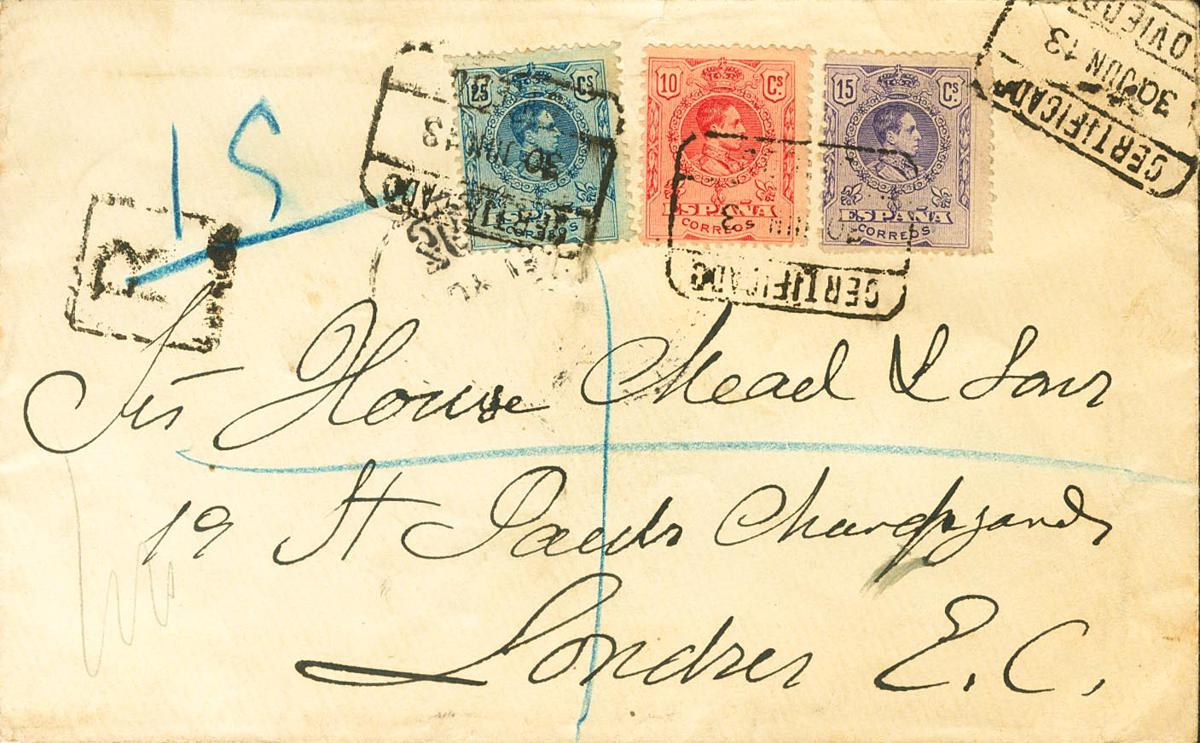 15
R
25 Cs
ESPAÑA
CORREOS
10 Cs
ESPAÑA
CORREOS
15 Cs
ESPAÑA
CORREOS
CERTIFICADO
30 JUN 13
CERTIFICADO
CERTIFICADO
30 JUN 13
OVIEDO
Srs House Mead & Sons
19 St Pauls Churchyards
Londres E.C.